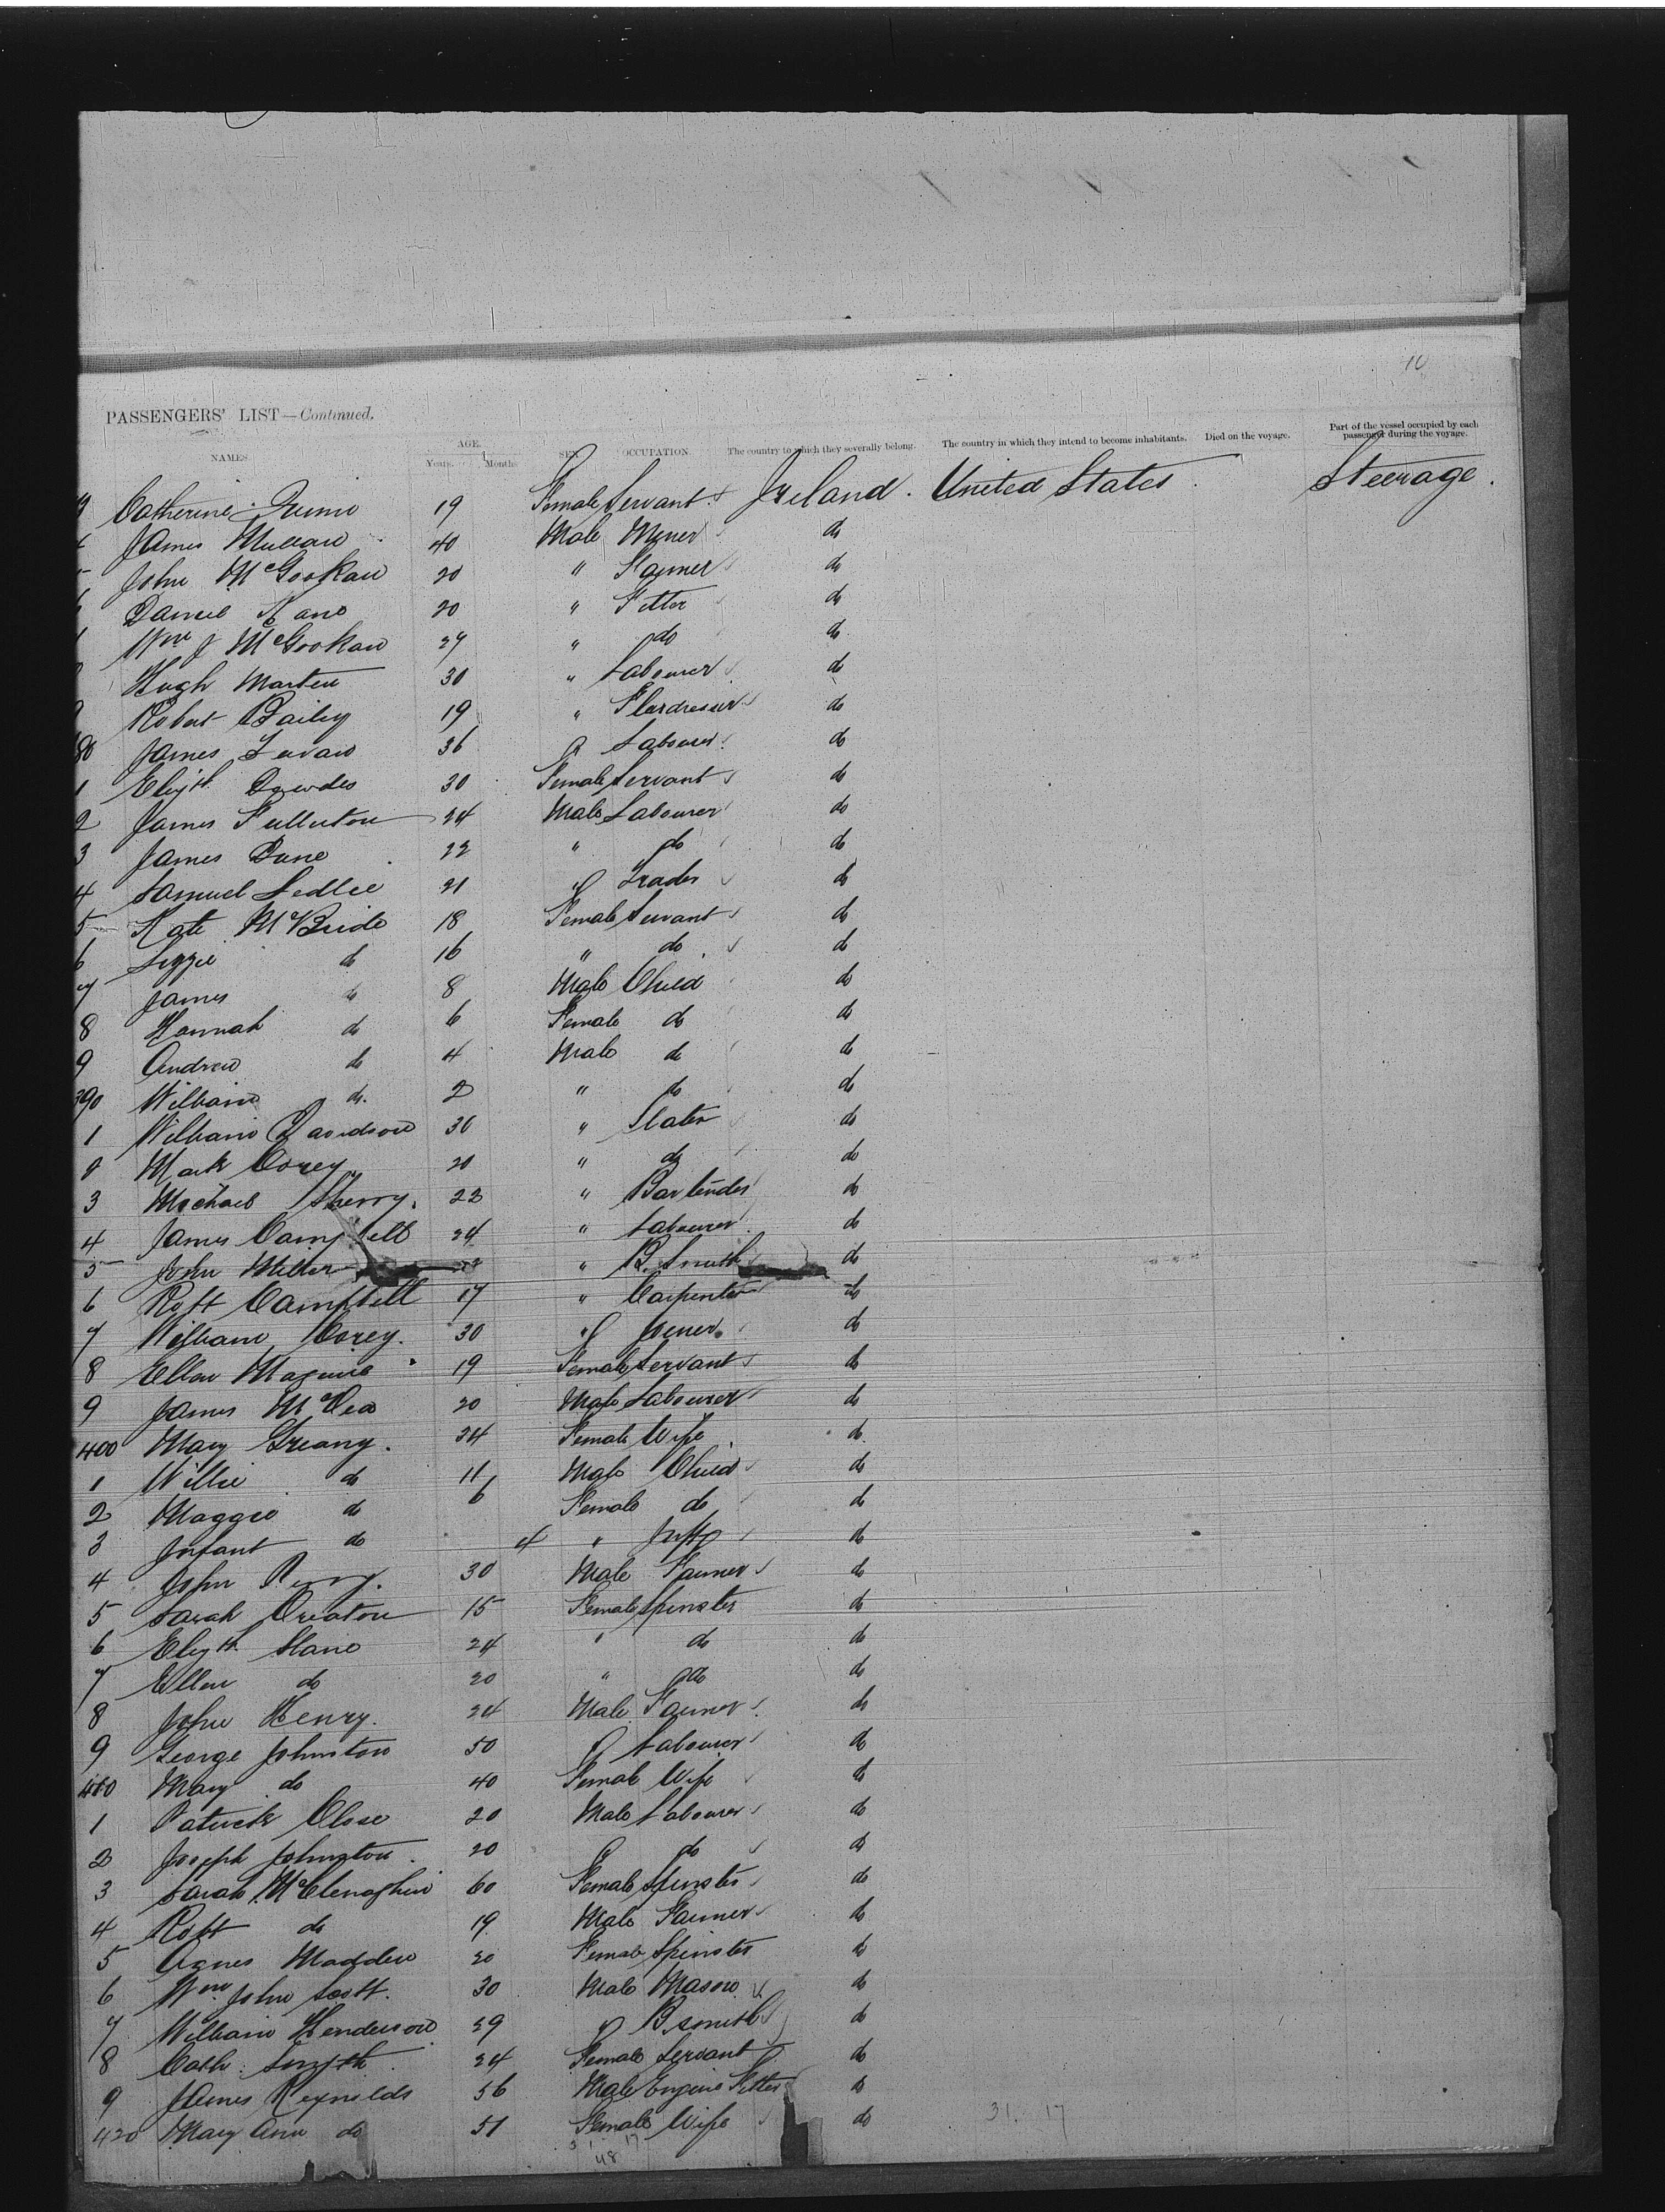 10
PASSENGERS' LIST—Continued.
NAMES. AGE. Years. Months. SEX. OCCUPATION. The country to which they severally belong. The country in which they intend to become inhabitants. Died on the voyage. Part of the vessel occupied by each passenger during the voyage.
Catherine Quinn 19 Female Servant Ireland. United States Steerage.
James Mullan 40 Male Miner do
John McGookan 20 " Farmer do
Daniel Kane 20 " Fitter do
Wm J McGookan 27 " do do
Hugh Martin 30 " Labourer do
Robert Bailey 19 " Flaxdresser do
James 36 Labourer do
1 Elizth 30 Female Servant do
2 James Fullerton 24 Male Labourer do
3 James Dune 22 " do do
4 Samuel Ledlie 21 " Trader do
5 Kate McBride 18 Female Servant do
6 Lizzie do 16 " do do
7 James do 8 Male Child do
8 Hannah do 6 Female do do
9 Andrew do 4 Male do do
390 William do. 2 " do do
1 William Davidson 30 " Slater do
2 Mark Corey 20 " do do
3 Michael Sherry. 22 " Bartender do
4 James Campbell 24 " Labourer do
5 John Miller " B. Smith do
6 Robt Campbell 17 " Carpenter do
7 William Corey. 30 " Joiner do
8 Ellen Maguire 19 Female Servant do
9 James McCea 20 Male Labourer do
400 Mary Greany. 34 Female Wife do
1 Willie do 11 Male Child do
2 Maggie do 6 Female do do
3 Infant do 4 " Inft do
4 John 30 Male Farmer do
5 Sarah Creaton 15 Female Spinster do
6 Elizth Slane 24 " do do
7 Ellen do 20 " do do
8 John Henry. 24 Male Farmer do
9 George Johnston 50 Labourer do
410 Mary do 40 Female Wife do
1 Patrick Close 20 Male Labourer do
2 Joseph Johnston. 20 do do
3 Sarah McClenaghin 60 Female Spinster do
4 Robt do 19 Male Farmer do
5 Agnes Madden 20 Female Spinster do
6 Wm John Scott. 30 Male Mason do
7 William Henderson 29 " B smith do
8 Cath. Smyth 24 Female Servant do
9 James Reynolds 56 Male Engine Fitter do
420 Mary Ann do 51 Female Wife do
31. 17
31 17
48